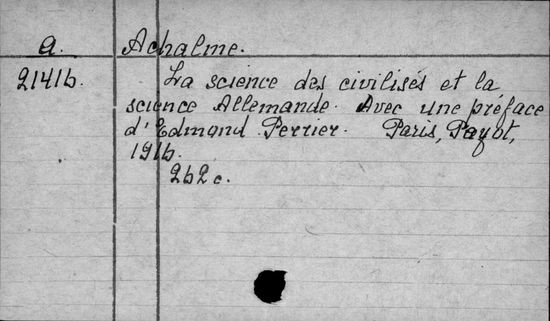 A. Achalme.
21416. La science des civilisés et la
science Allemande. Avec une préface
d'Edmond Perrier. Paris, Payot,
1916.
262 c.